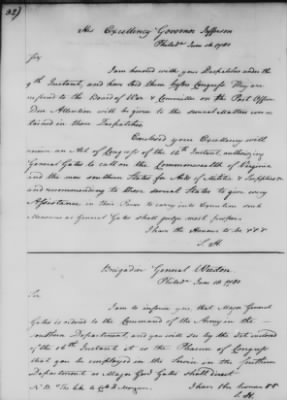 His Excellency Governor Jefferson
Philada June 1780
Sir
I am honored with your Despatches under the
9th Instant, and have laid them before Congress. They are
referred to the Board of War & Committee on the Post Office
Due Attention will be given to the several Matters con-
tained in those Despatches.
Enclosed your Excellency will
receive an Act of Congress of the 14th Instant, authorizing
General Gates to call on the Commonwealth of Virginia
and the more southern States for Aids of Militia & Supplies
and recommending to those several States to give every
Assistance in their Power to carry into Execution such
Measures as General Gates shall judge most proper.
I have the Honour to be &c &c
S. H.
Brigadier General Weedon
Philada June 1780
Sir
I am to inform you, that Major General
Gates is ordered to the Command of the Army in the
southern Department, and you will see by the
of the Instant it is the Pleasure of Congress
that you be employed in the Service in the Southern
Department as Major Genl Gates shall direct
I have the honour &c
S. H.
N. B. The like to Morgan